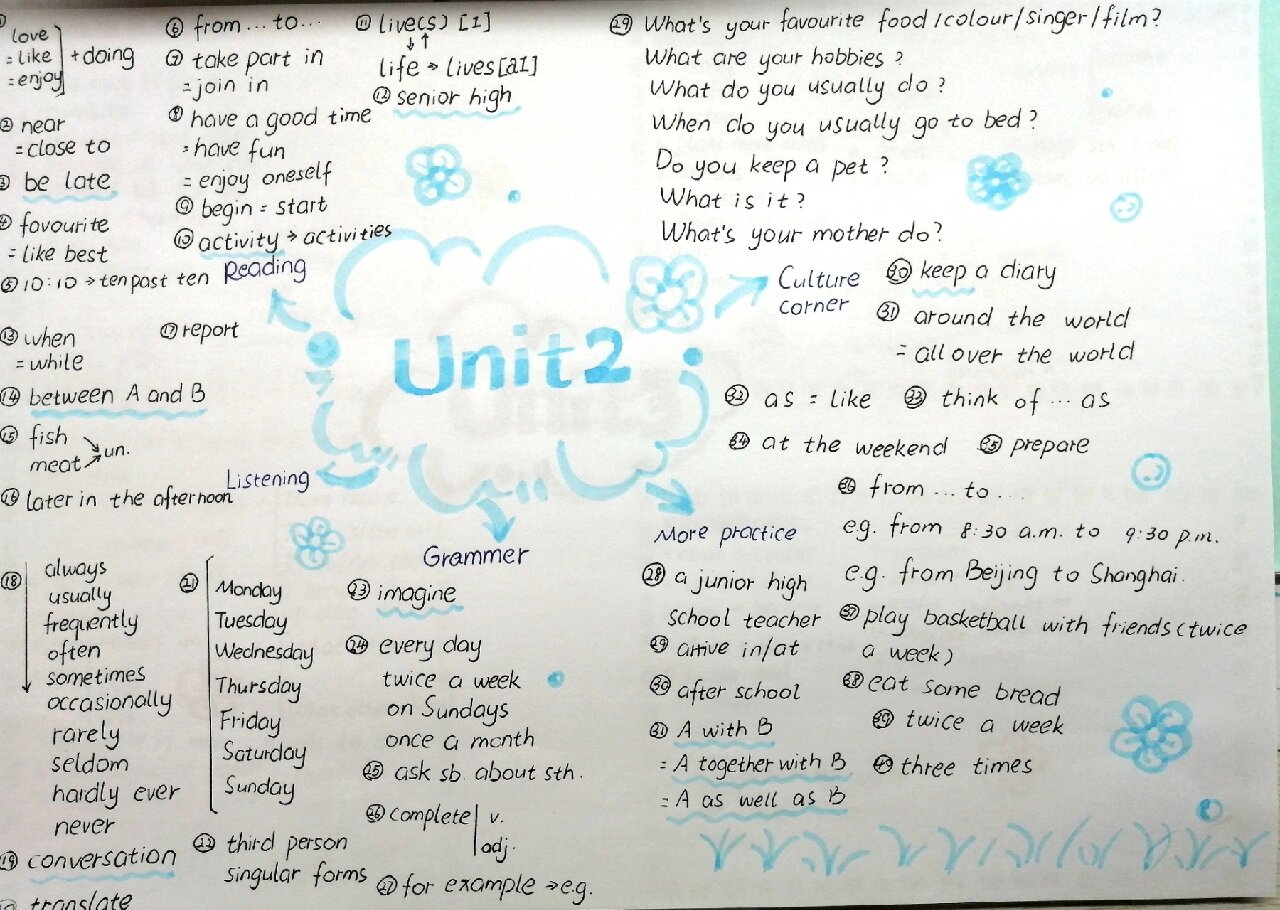 ① love
= like
= enjoy + doing
② near
= close to
③ be late
④ favourite
= like best
⑤ 10:10 → ten past ten
⑥ from ... to ...
⑦ take part in
= join in
⑧ have a good time
= have fun
= enjoy oneself
⑨ begin = start
⑩ activity → activities
⑪ live(s) [I]
↓↑
life → lives [aI]
⑫ senior high
Reading
Unit2
⑬ when
= while
⑭ between A and B
⑮ fish
meat un.
⑯ later in the afternoon
⑰ report
Listening
⑱ always
usually
frequently
often
sometimes
occasionally
rarely
seldom
hardly ever
never
⑲ conversation
translate
㉑ Monday
Tuesday
Wednesday
Thursday
Friday
Saturday
Sunday
㉒ third person
singular forms
Grammer
㉓ imagine
㉔ every day
twice a week
on Sundays
once a month
㉕ ask sb. about sth.
㉖ complete v.
adj.
㉗ for example → e.g.
㉙ What's your favourite food/colour/singer/film?
What are your hobbies?
What do you usually do?
When do you usually go to bed?
Do you keep a pet?
What is it?
What's your mother do?
Culture
corner
㉚ keep a diary
㉛ around the world
= all over the world
㉜ as = like
㉝ think of ... as
㉞ at the weekend
㉟ prepare
More practice
㉘ a junior high
school teacher
㉙ arrive in/at
㉚ after school
㉛ A with B
= A together with B
= A as well as B
㊱ from ... to ...
e.g. from 8:30 a.m. to 9:30 p.m.
e.g. from Beijing to Shanghai.
㊲ play basketball with friends (twice
a week)
㊳ eat some bread
㊴ twice a week
㊵ three times